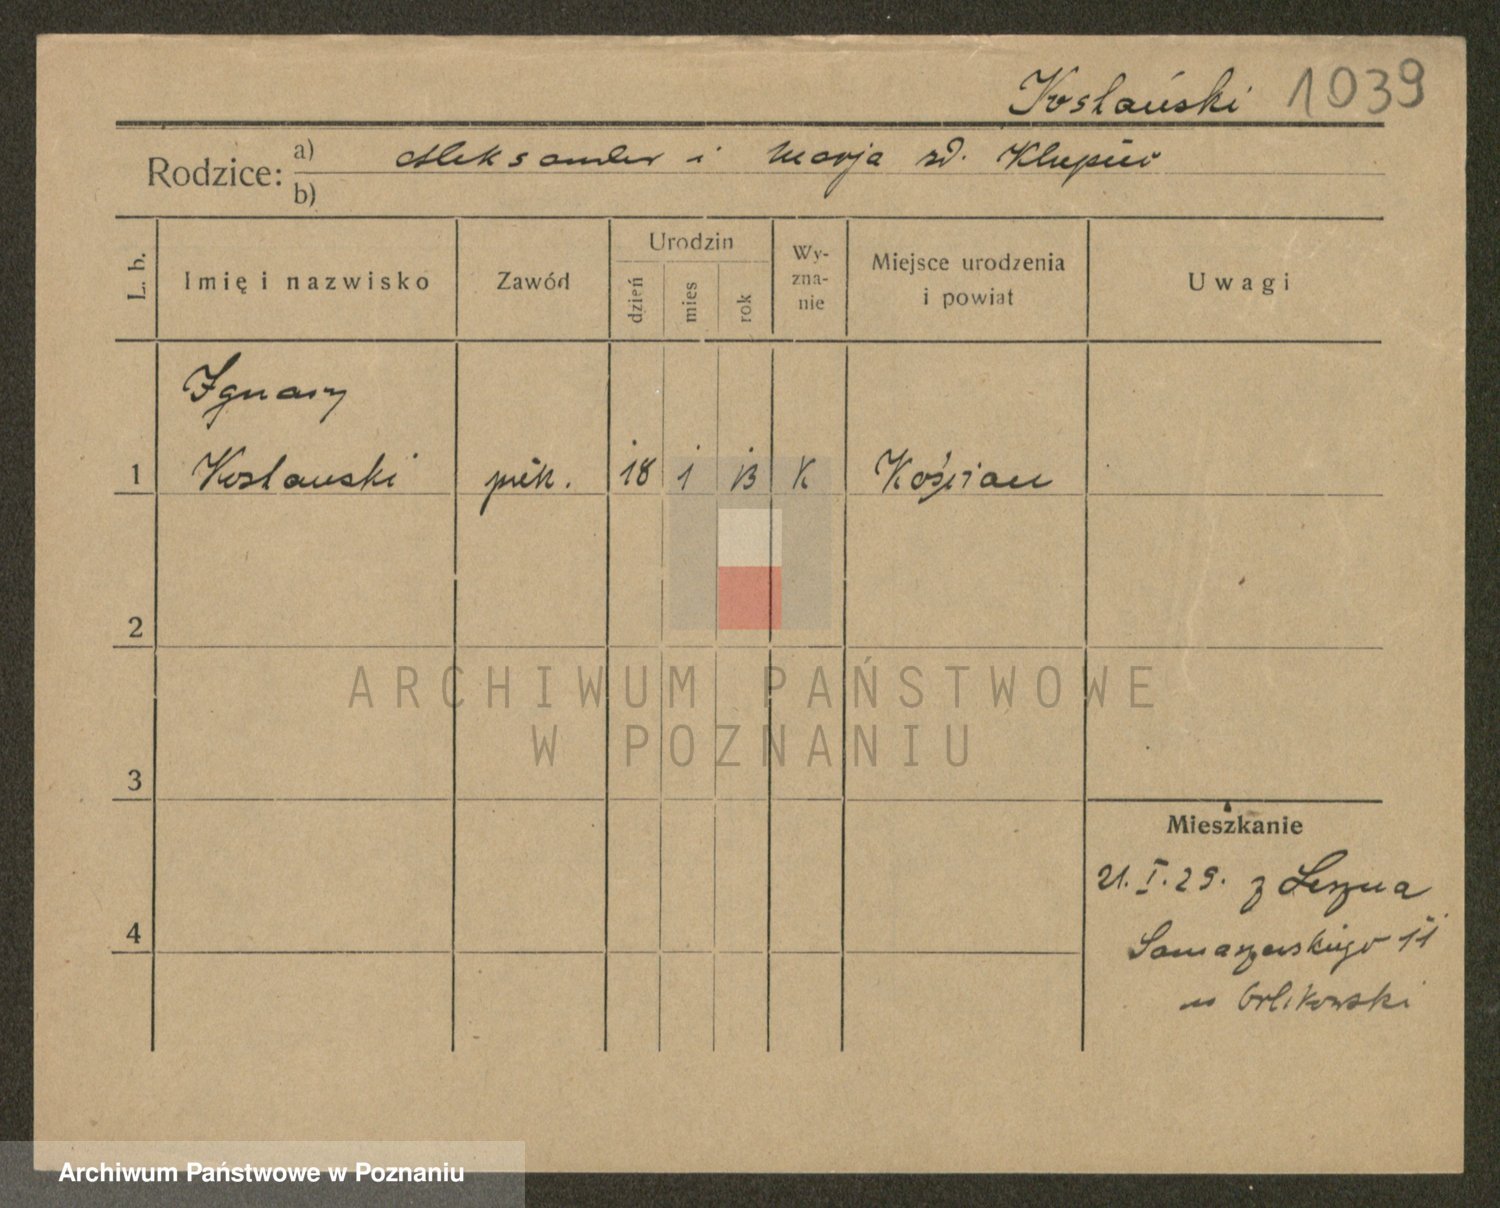 Kosłański 1039
Rodzice: a) Aleksander i Marja zd.
b)
L. b.
Imię i nazwisko
Zawód
Urodzin
dzień
mies
rok
Wy-
zna-
nie
Miejsce urodzenia
i powiat
Uwagi
Ignacy
1 Kosłanski piek. 18 1 13 K Kościan
2
ARCHIWUM PAŃSTWOWE
W POZNANIU
3
Mieszkanie
21. I. 29. z Leszna
4
Samarzewskiego 11
Orlikowski
Archiwum Państwowe w Poznaniu